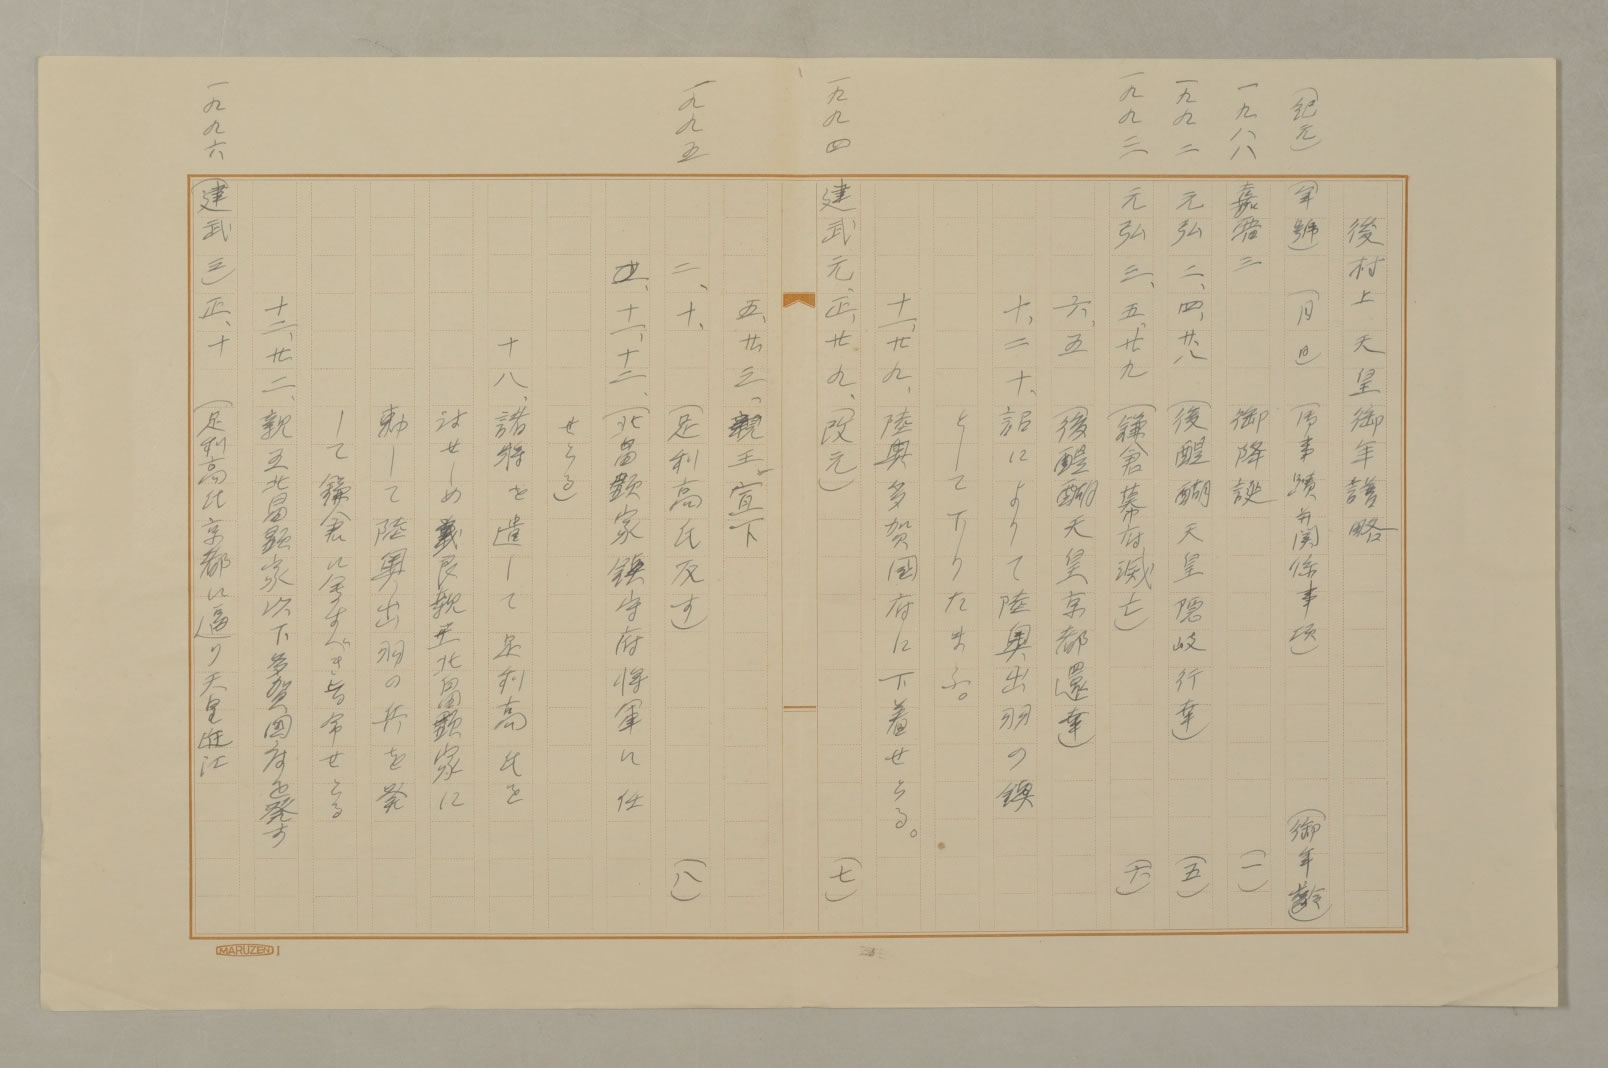 後村上天皇御年譜略
(紀元) (年號) (月日) (御事蹟并関係事項) (御年齢)
一九八八 嘉暦三 御降誕 (一)
一九九二 元弘二、四、廿八 (後醍醐天皇隠岐行幸) (五)
一九九三 元弘三、五、廿九 (鎌倉幕府滅亡) (六)
六、五 (後醍醐天皇京都還幸)
十、二十、詔によりて陸奥出羽の鎮
として下りたまふ。
十一、廿九、陸奥多賀国府に下着せらる。
一九九四 建武元、正、廿九、(改元) (七)
五、廿三、親王宣下
一九九五 二、十、(足利高氏反す) (八)
十一、十二、(北畠顕家鎮守府将軍に任
せらる)
十八、諸将を遣して足利高氏を
討せしめ義良親王北畠顕家に
勅して陸奥出羽の兵を発
して鎌倉に会すべき旨命せらる
十二、廿二、親王北畠顕家以下多賀國府を発す
一九九六 (建武三)正、十 (足利高氏京都に逼り天皇近江
MARUZEN